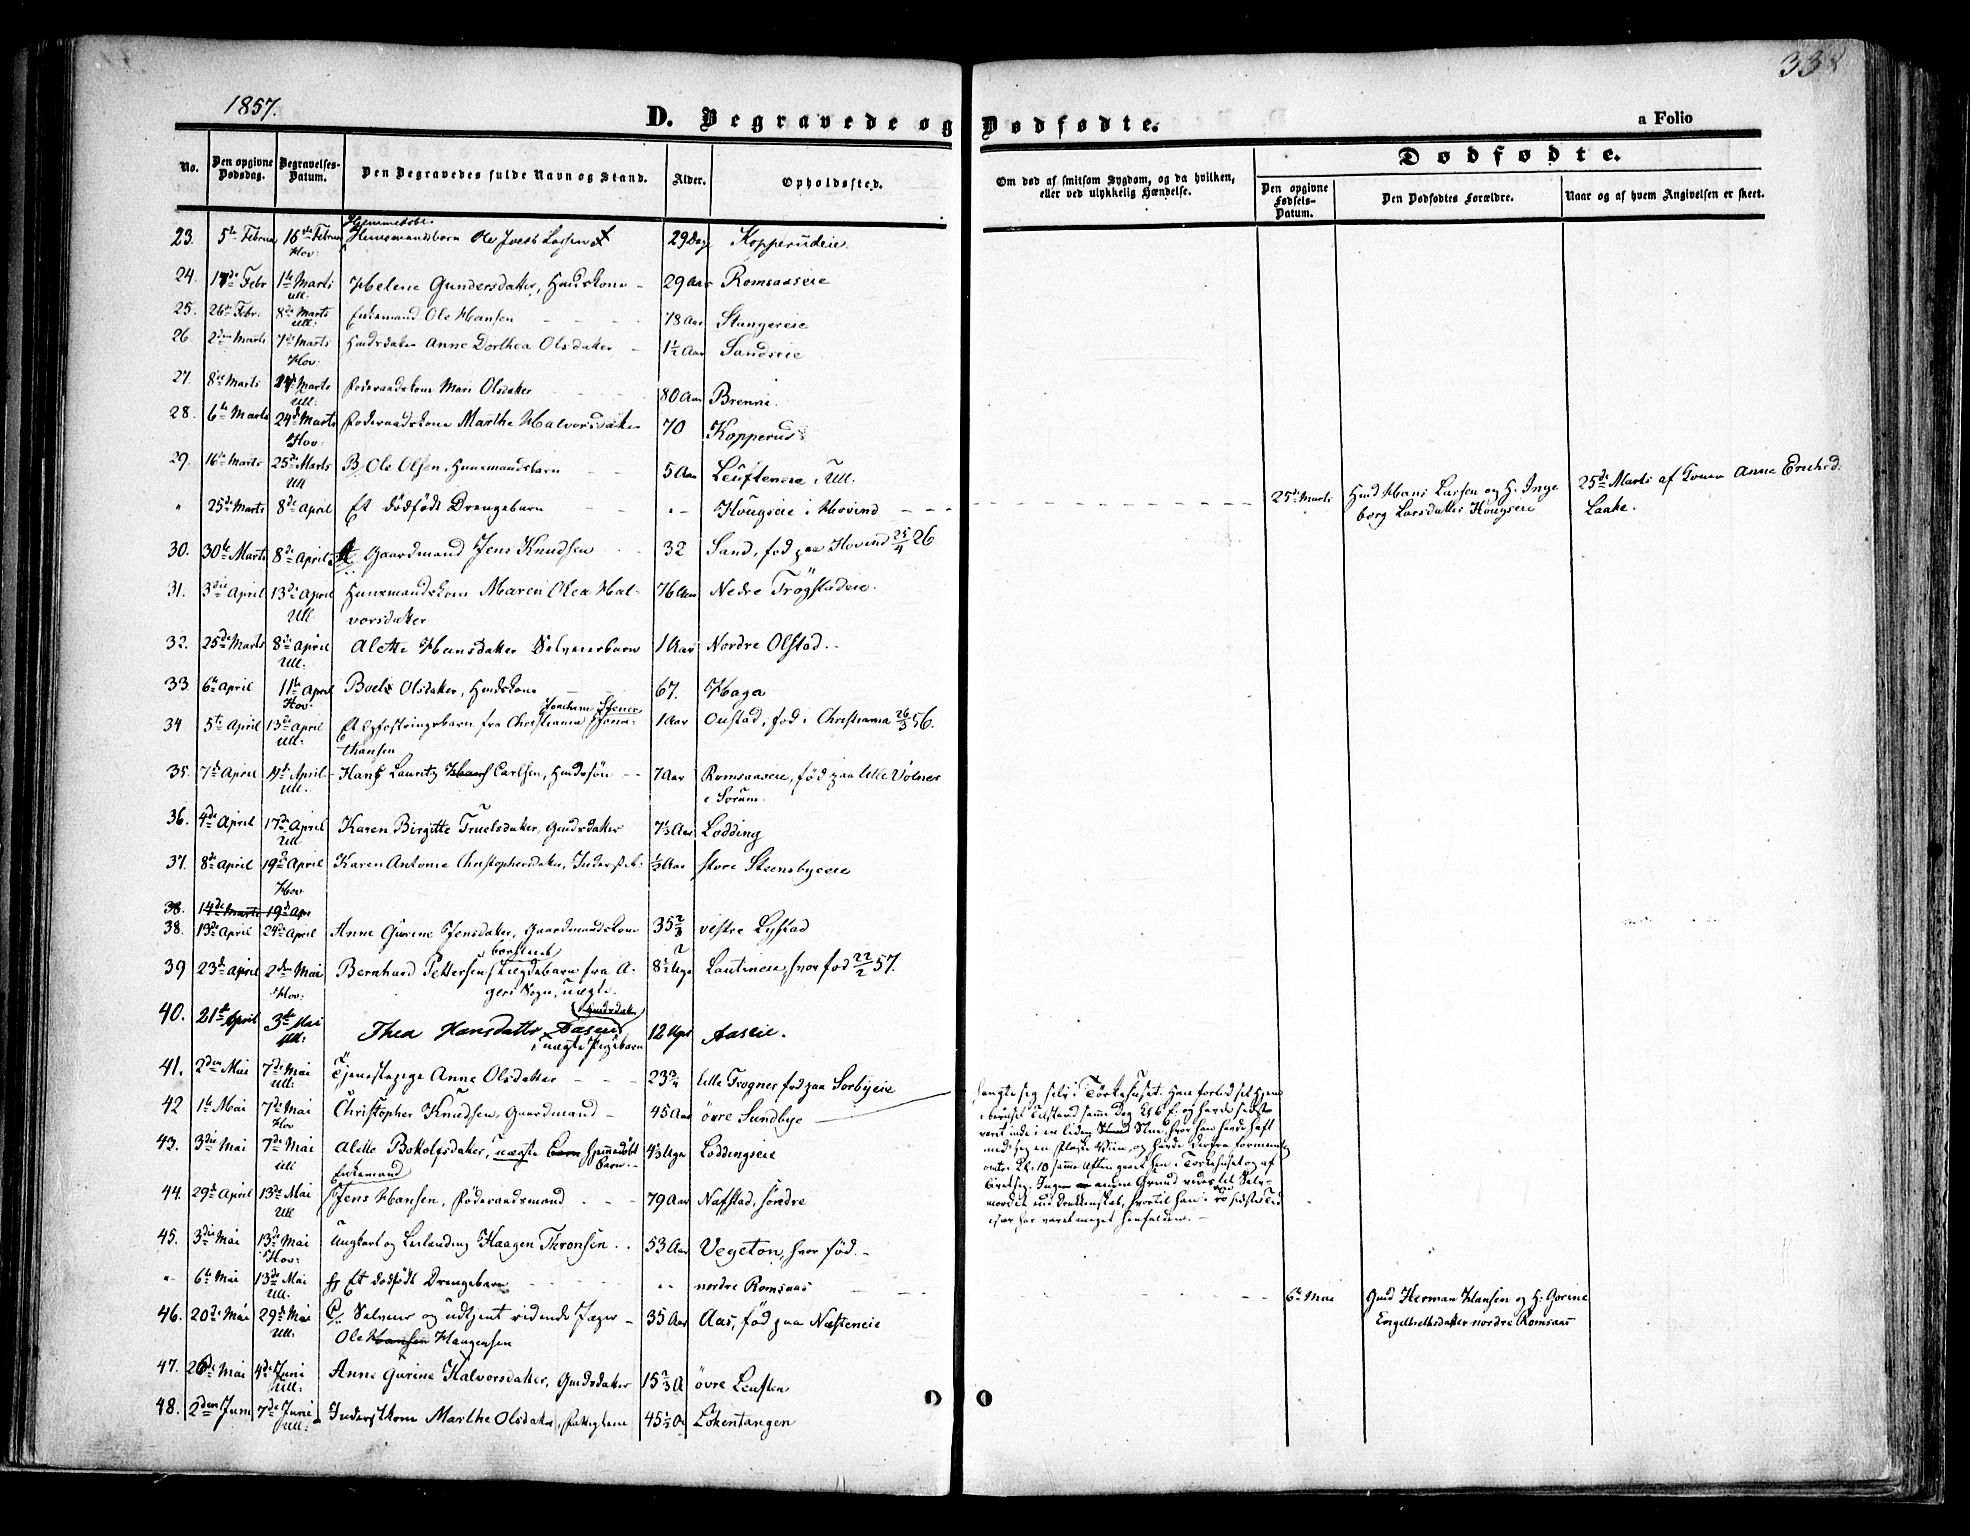 1857.
338
D. Begravede og Dødfødte.
a Folio
No.
Den opgivne Dødsdag.
Begravelses-Datum.
Den Begravedes fulde Navn og Stand.
Alder.
Opholdssted.
Om død af smitsom Sygdom, og da hvilken, eller ved ulykkelig Hændelse.
Dødfødte.
Den opgivne Fødsels-Datum.
Den Dødfødtes Forældre.
Naar og af hvem Angivelsen er skeet.
Hjemmedøbt
23. 5te Februar 16de Februar Huusmandsbarn Ole 29 Dage Kopperudeie
Hov:
24. Febr 1te Marts Helene Gundersdatter, 29 Aar Romsaaseie
Ull.
25. 26de Febr. 8de Marts Enkemand Ole Hansen 78 Aar Stangereie
Ull:
26 2den Marts 7de Marts Anne Dorthea Olsdatter 1½ Aar Sandseie
Hov:
27. 8de Marts Marts Føderaadskone Mari Olsdatter 80 Aar Brenni.
Ull:
28. 6te Marts 24de Marts Føderaadskone Marthe Halvorsdatter 70 Kopperud
Hov:
29. 16de Marts 25de Marts Ole Olsen, Huusmandsbarn 5 Aar Leufteneie i Ull:
Ull
" 25de Marts 8de April Et dödfödt Drengebarn "- Hougseie i Hovind
25de Marts Hmd Hans Larsen og H. Inge 25de Marts af Anne Erichsd.
borg Larsdatter Hougseie Laake.
30. 30te Marts 8de April Gaardmand Jens Knudsen 32 Sand, fød paa Hovind 25/4 26
31. 3die April 13de April Huusmandskone Maren Olea Hal- 76 Aar Nedre Trögstadeie.
Ull: vorsdatter
32. 25de Marts 8de April Alette Hansdatter Selveierbarn 1 Aar Nordre Olstad.
Ull:
33 6te April 11te April Olsdatter, Huuskone 67. Haga
Hov. Joacham Stener
34 5te April 13de April Et Opfostringsbarn fra Christiania Jona- 1 Aar Oustad, fød i Christiania 26/3 56.
Ull: thansen
35. 7de April April Hans Lauritz Hans Carlsen, Huusssön 7 Aar Romsaaseie, fød paa lille Volner
Ull. i Sörum.
36. 4de April 17de April Karen Birgitte Truelsdatter, Gmdsdatter 7⅓ Aar Lodding
Ull
37. 8de April 19de April Karen Antonie Christophersdatter, ⅓ Aar store Steensbyeie
Hov
38. 14de Marts 19de Apr
38. 13de April 24de April Anne Gurine Jensdatter, Gaardmandskone 35⅔ vestre Lystad
39 23de April 2den Mai Bernhard Pettersen Lægdebarn fra A- 8½ Uge Lautineie, hvor fød 22/2 57.
Hov: gers Sogn, uægte.
Hmdsdatter
40. 21de April 3de Mai Thea Hansdatter 12 Uger Aaseie.
Ull: uægte Pigebarn
41. 2den Mai 7de Mai Tjenestepige Anne Olsdatter 23¾ lille Frogner fød paa Sorbyeie
Ull:
42 1te Mai 7de Mai Christopher Knudsen, Gaardmand 45 Aar övre Sundbye
Hov
hængte sig selv i Törkehuset. Han forlod sit Hjem
i beruset Tilstand samme Dag Kl 6 f. og havde sidst
været inde i en liden Stue, hvor han havde haft
med sig en Flaske Viin, og havde derfra formeent
omtr. Kl. 10 samme Aften gaaet hen i Törkehuset og af
livet sig. Ingen anden Grund vides til Selv-
mordet end Drukkenskab, hvortil han i de sidste Tid
især har været meget henfalden.
43. 3die Mai 7de Mai Alette Bottolfsdatter, uægte Barn Hjemmedöbt 4⅓ Uge Loddingseie
Ull Barn.
Enkemand
44. 29de April 13de Mai Jens Hansen, Föderaadsmand 79 Aar Nafstad, söndre
Ull
45. 3die Mai 13de Mai Ungkarl og Haagen Thronsen 53 Aar Vegeton, hvor fød.
Hov:
" 6te Mai 13de Mai Et dödfödt Drengebarn "- nordre Romsaas
Ull.
6te Mai Gmd Herman Hansen og H. Gorine
Engelbretsdatter nordre Romsaas
46. 20de Mai 29de Mai Selveier og udtjent ridende Jæger 35 Aar Aas, fød paa Næsteneie
Ull: Ole Hansen Haagensen
47. 26de Mai 4de Juni Anne Gurine Halvorsdatter, Gmdsdatter 15⅔ A övre Leuften
Ull:
48. 2den Juni 7de Juni Inderstkone Marthe Olsdatter, 45½ A Lökentangen
Ull: